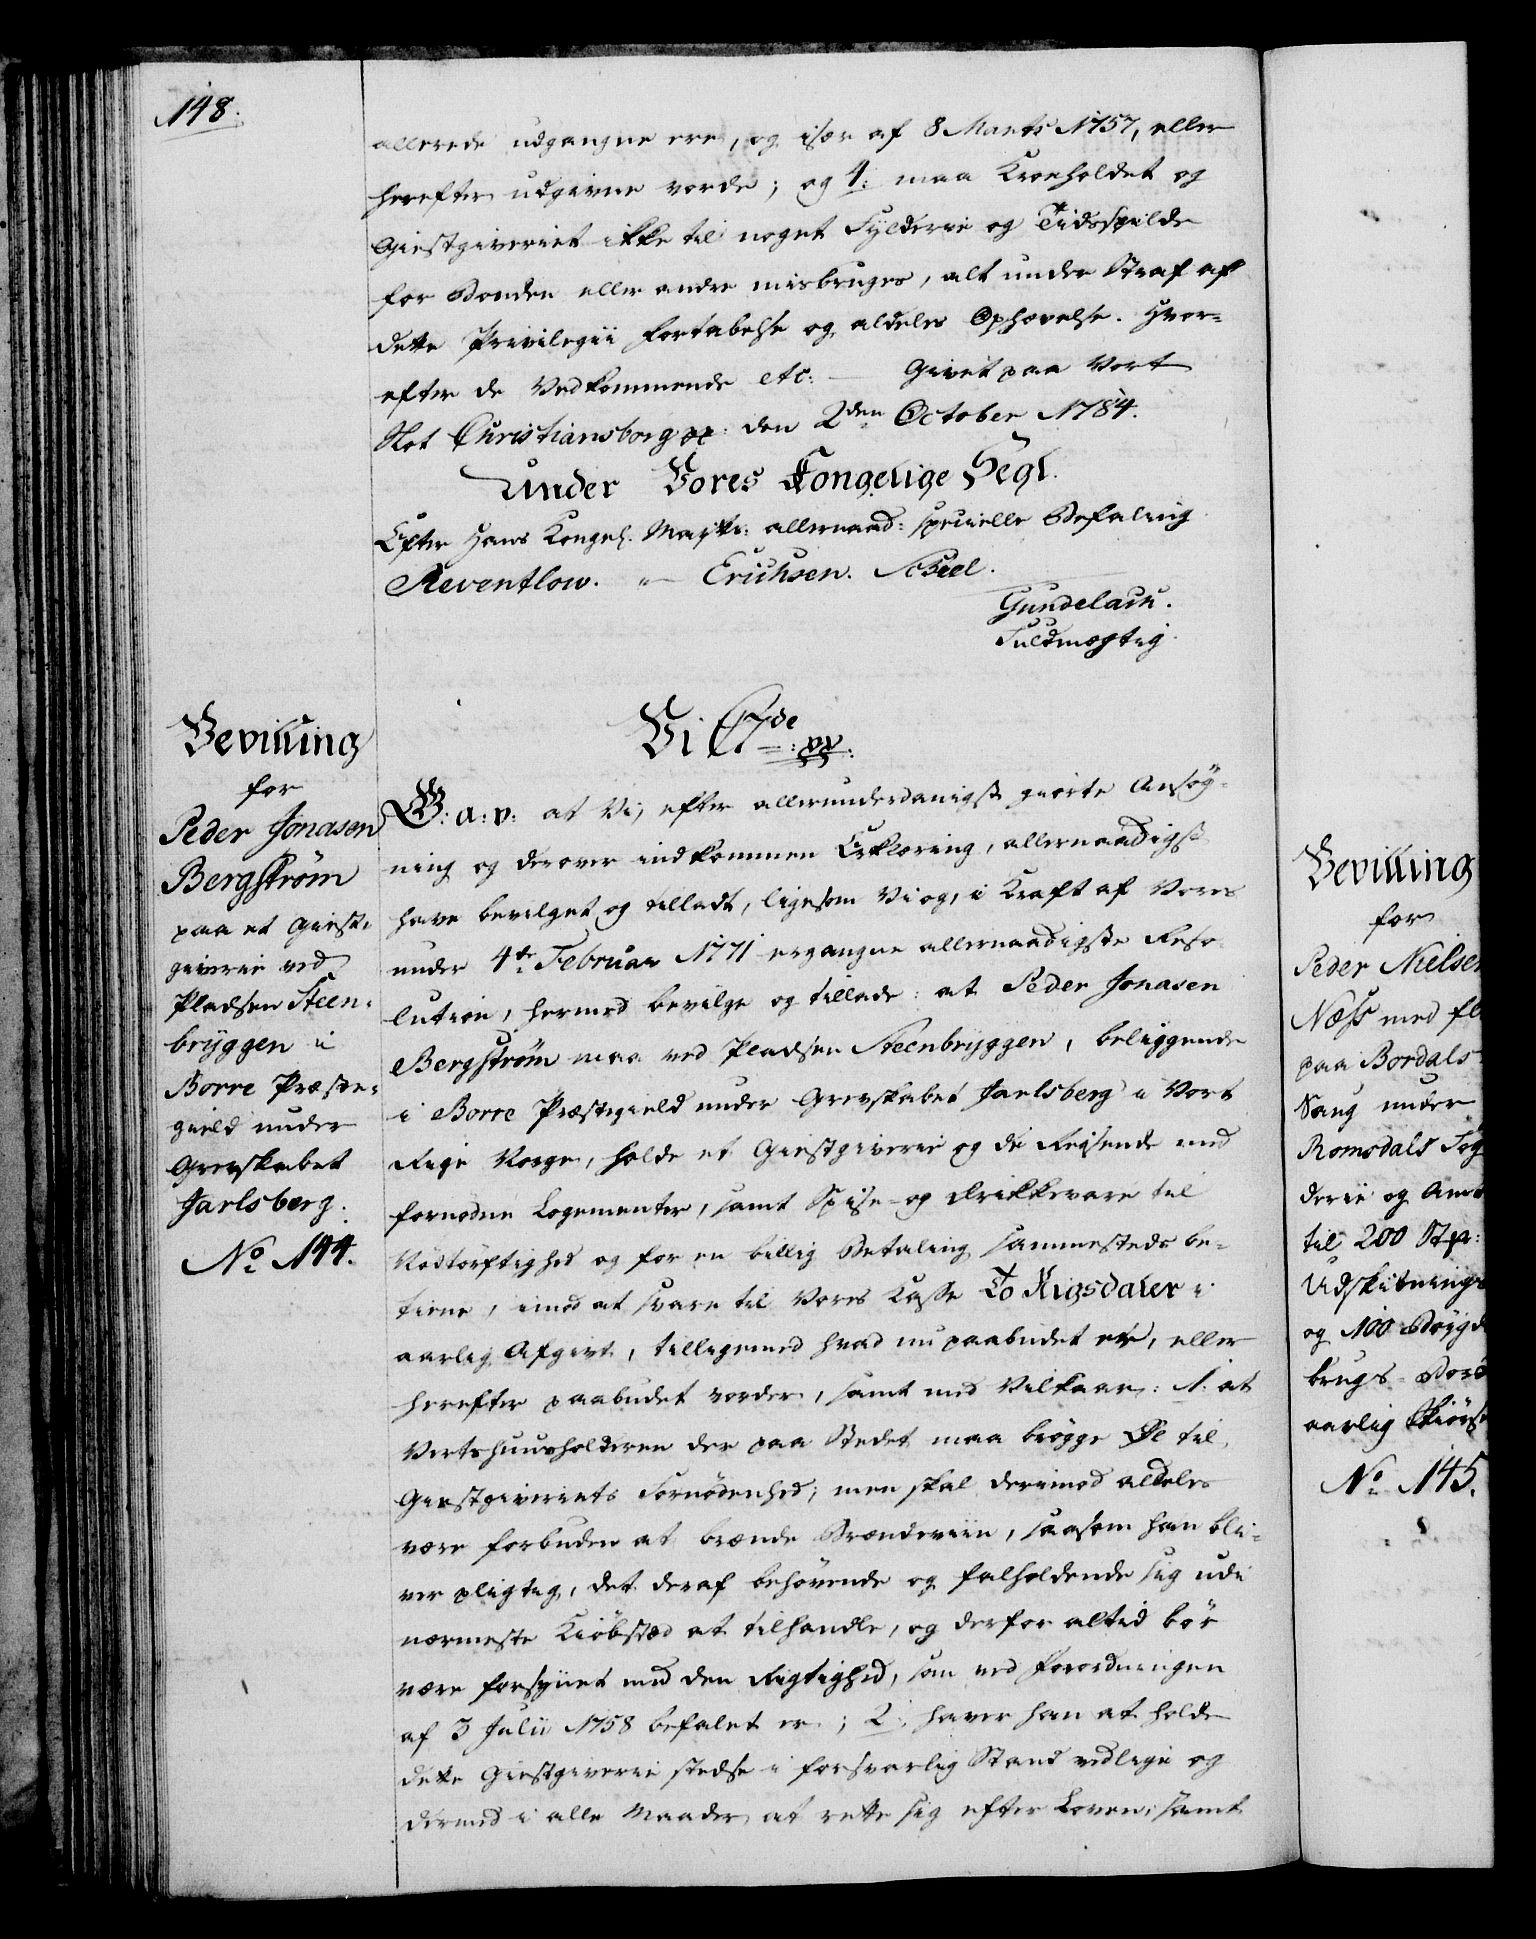 148.
allerede udgangne ere, og især af 8 Marts 1757, eller
herefter udgivne vorde; og 4: maa Kroeholdet og
Giestgiveriet ikke til noget Fylderie og Tidsspilde
for Bonden eller andre misbruges, alt under Straf af
dette Privilegii Fortabelse og aldeles Ophævelse. Hvor-
efter de Vedkommende etc: — Givet paa Vort
Slot Christiansborg pp: den 2den October 1784.
Under Vores Kongelige Segl.
Efter Hans Kongel. Majts: allernaad: specielle Befaling
Reventlow. " Erichsen. Schiel.
Gundelach.
Fuldmægtig.
Bevilling
for
Peder Jonasen
Bergstrøm
paa et Giest-
giverie ved
Pladsen Steen-
bryggen i
Borre Præste-
gield under
Grevskabet
Jarlsberg.
No 144.
Vi C 7de :pp:
G: a: v: at Vi, efter allerunderdanigst giorte Ansøg-
ning og derover indkommen Erklæring, allernaadigst
have bevilget og tilladt, ligesom Vi og, i Kraft af Vores
under 4de Februar 1771 ergangne allernaadigste Reso-
lution, hermed bevilge og tillade: at Peder Jonasen
Bergstrøm maa ved Pladsen Steenbryggen, beliggende
i Borre Præstegield under Grevskabet Jarlsberg i Vort
Rige Norge, holde et Giestgiverie og de Reisende med
fornødne Logementer, samt Spise- og Drikkevare til
Nødtørftighed og for en billig Betaling sammesteds be-
tiene, imod at svare til Vores Kasse To Rigsdaler i
aarlig Afgivt, tilligemed hvad nu paabudet er, eller
herefter paabudet vorder, samt med Vilkaar: 1. at
Vertshuusholderen der paa Stedet maa brygge Øl til
Giestgiveriets Fornødenhed; men skal derimod aldeles
være forbuden at brænde Brændeviin, saasom han bli-
ver pligtig, det deraf behøvende og falholdende sig udi
nærmeste Kiøbstæd at tilhandle, og derfor altid bør
være forsynet med den Rigtighed, som ved Forordningen
af 3 Julii 1758 befalet er; 2: haver han at holde
dette Giestgiverie stedse i forsvarlig Stand vedlige og
dermed i alle Maader at rette sig efter Loven, samt
Bevilling
for
Peder Nielsen
Næss med fl
paa Bordals
Saug under
Romsdals Fog
derie og Amt
til 200 St
Udskibnings
og 100 Bøygde
brugs- Bord
aarlig Skiørs
No 145.